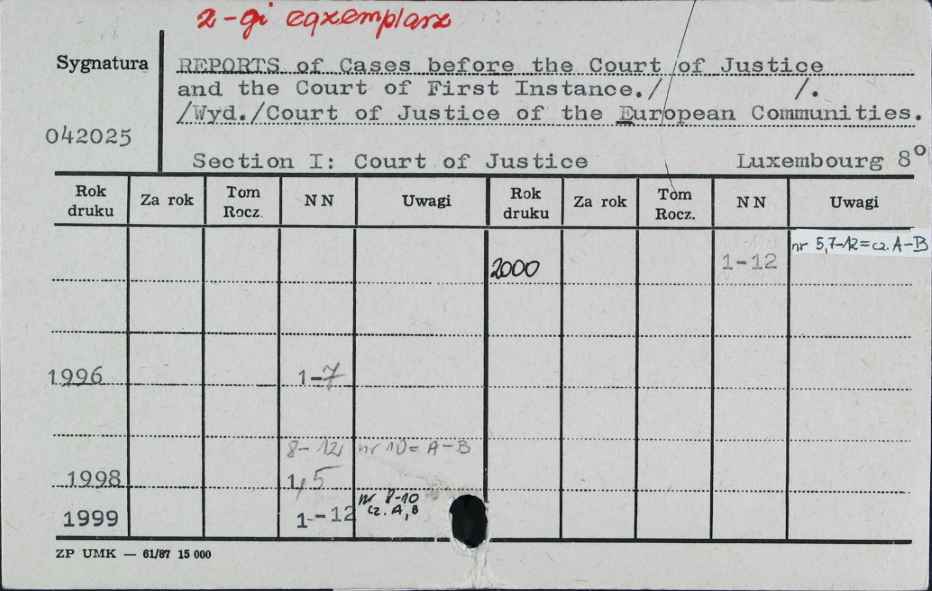 2-gi egzemplarz
Sygnatura
042025
REPORTS of Cases before the Court of Justice
and the Court of First Instance./ /.
/Wyd./Court of Justice of the European Communities.
Section I: Court of Justice Luxembourg 8°
Rok druku Za rok Tom Rocz. NN Uwagi Rok druku Za rok Tom Rocz. NN Uwagi
2000 1-12 nr 5,7-12=cz. A-B
1996 1-7
8-12, nr 10= A-B
1998 1,5
1999 1--12 nr 8-10 cz. A, B
ZP UMK — 61/87 15 000